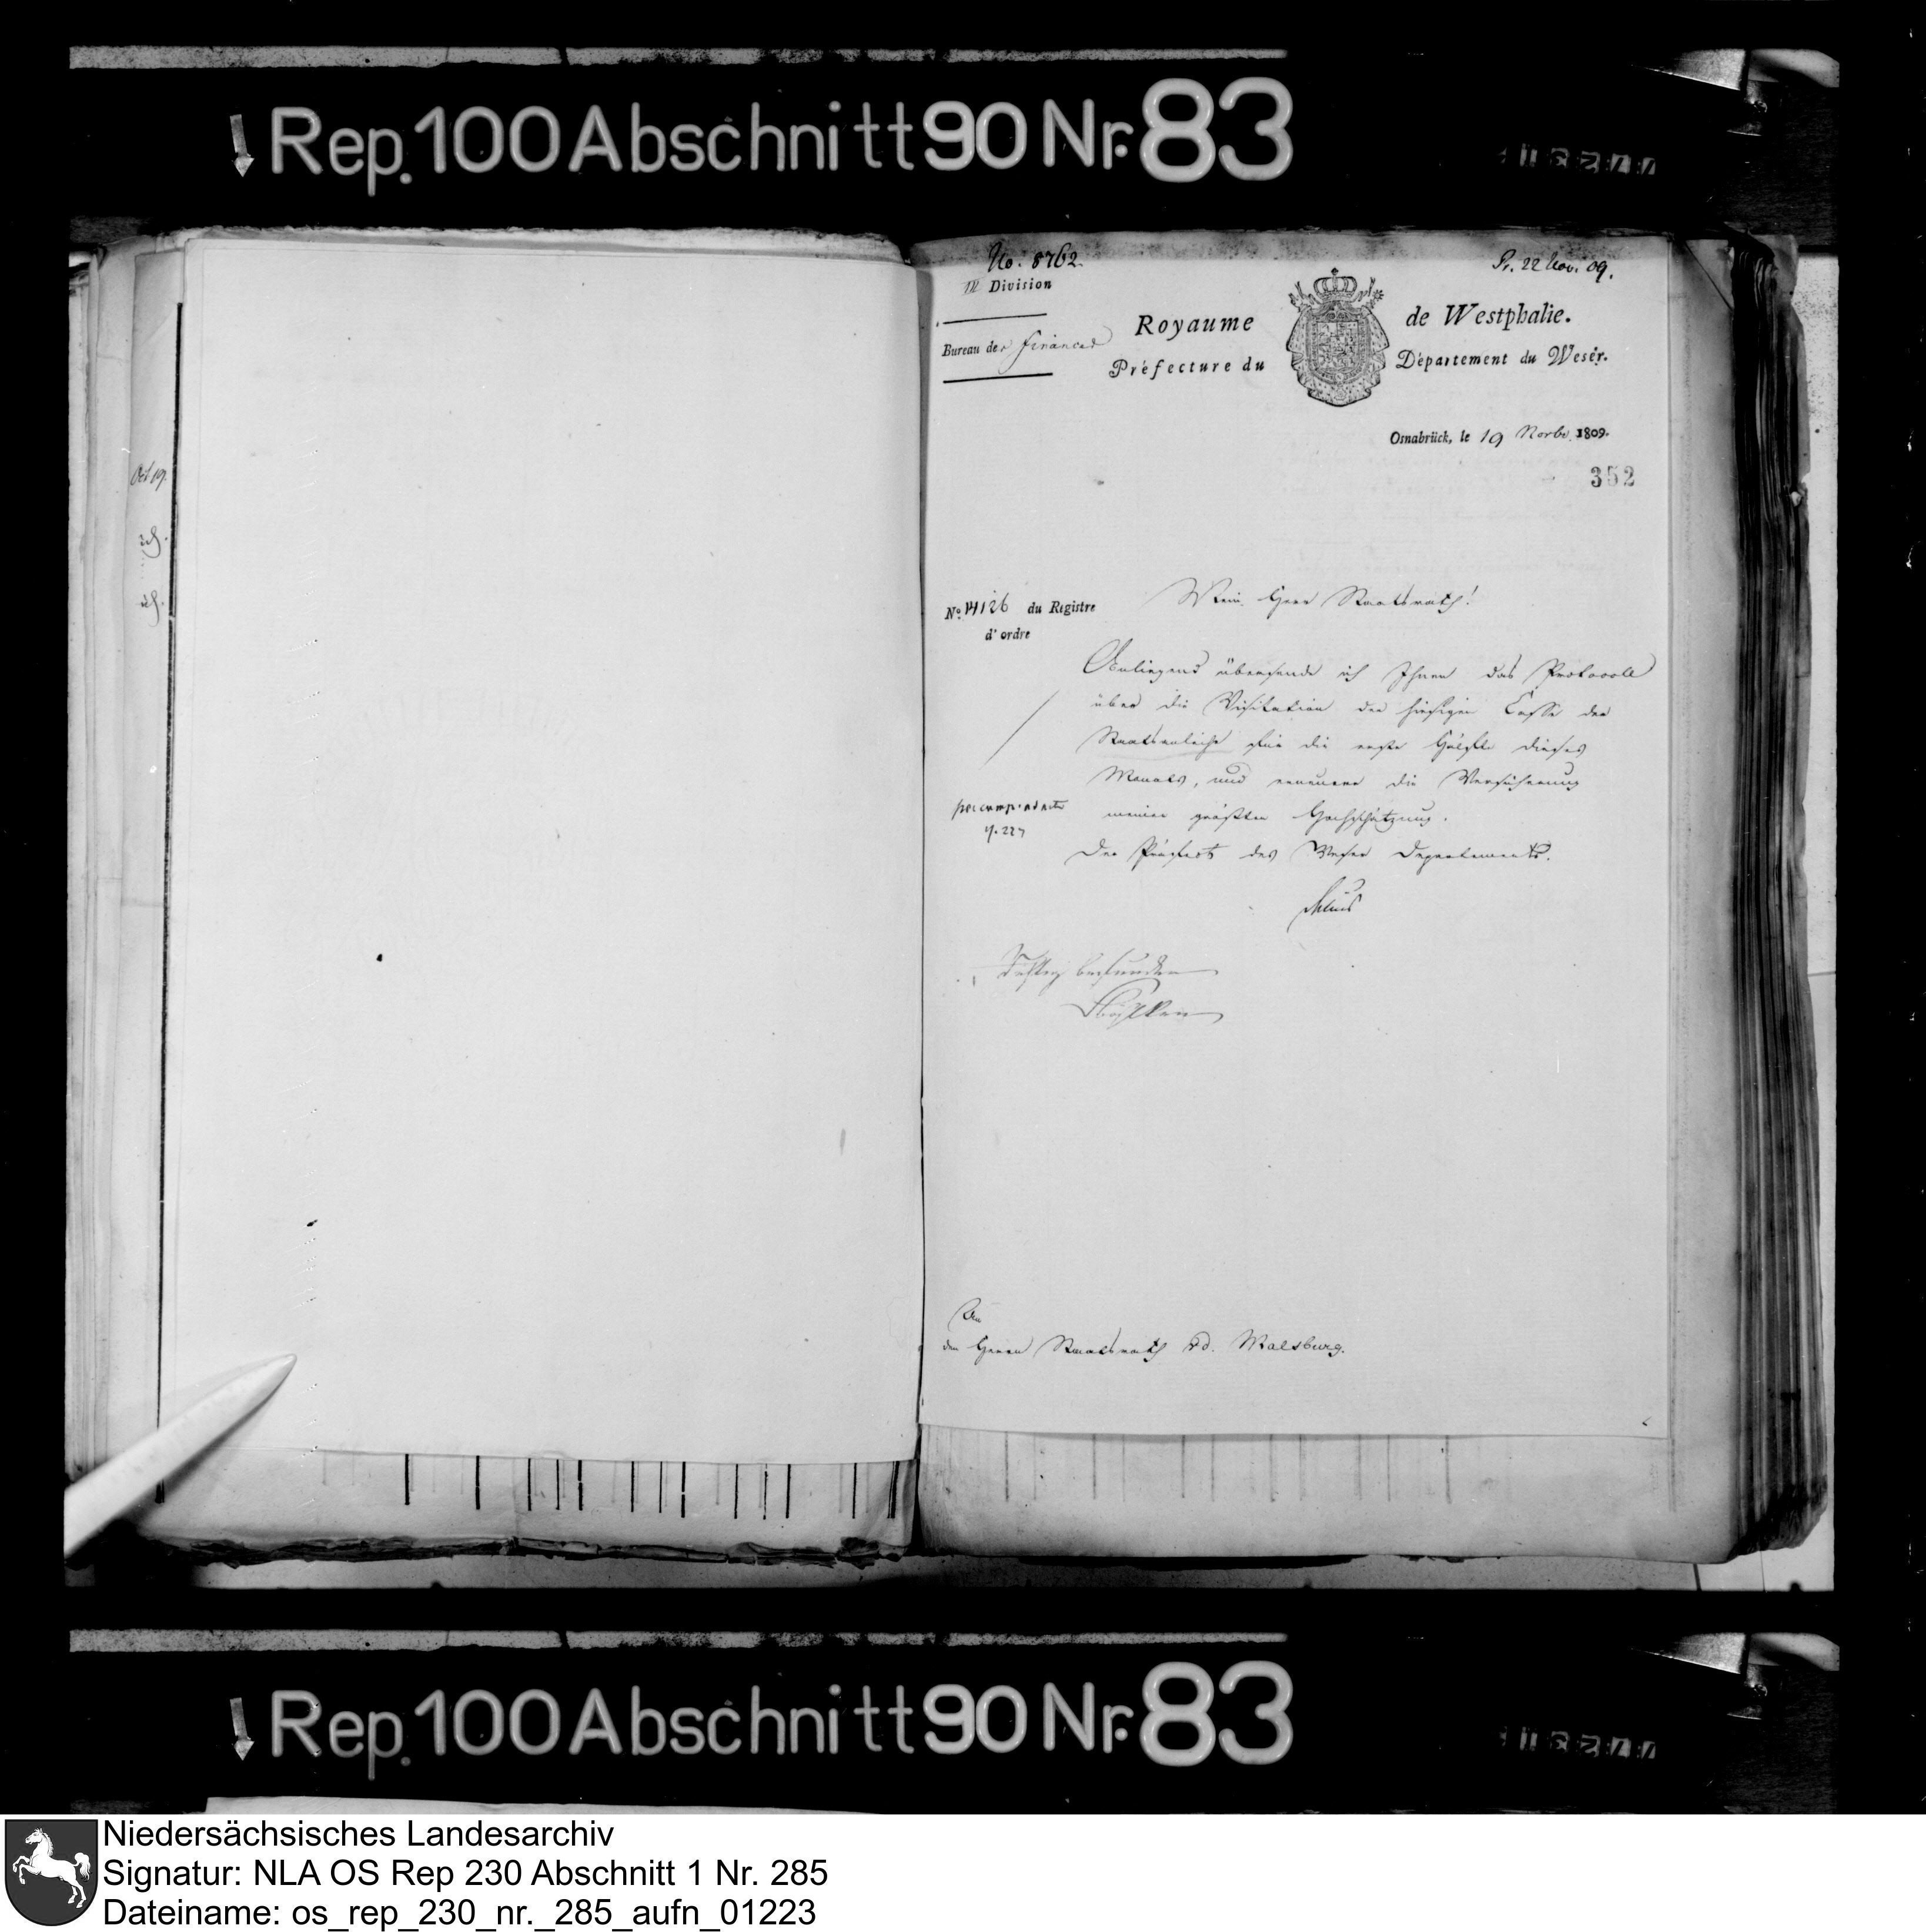 Rep. 100 Abschnitt 90 Nr. 83
No. 8762.
Pr. 22 Nov. 09.
III Division
Bureau des finances
Royaume de Westphalie.
Préfecture du Département du Weser.
Osnabrück, le 19 Novbr. 1809.
352
Oct 19.
No. 14126 du Registre
d'ordre
Mein Herr Staatsrath!
Anliegend übersende ich Ihnen das Protocoll
über die Visitation der hiesigen Casse der
Staatsanleihe für die erste Hälfte dieses
Monats, und erneuere die Versicherung
meiner größten Hochschätzung.
Der Präfect des Weser Departements.
Delius
befunden
An
den Herrn Staatsrath v. d. Malsburg.
Rep. 100 Abschnitt 90 Nr. 83
Niedersächsisches Landesarchiv
Signatur: NLA OS Rep 230 Abschnitt 1 Nr. 285
Dateiname: os_rep_230_nr._285_aufn_01223